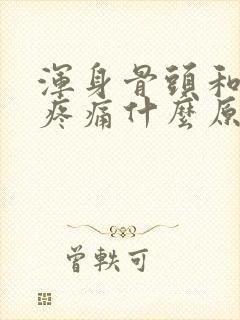 渾身骨頭和
疼痛什麼原
曾軼可